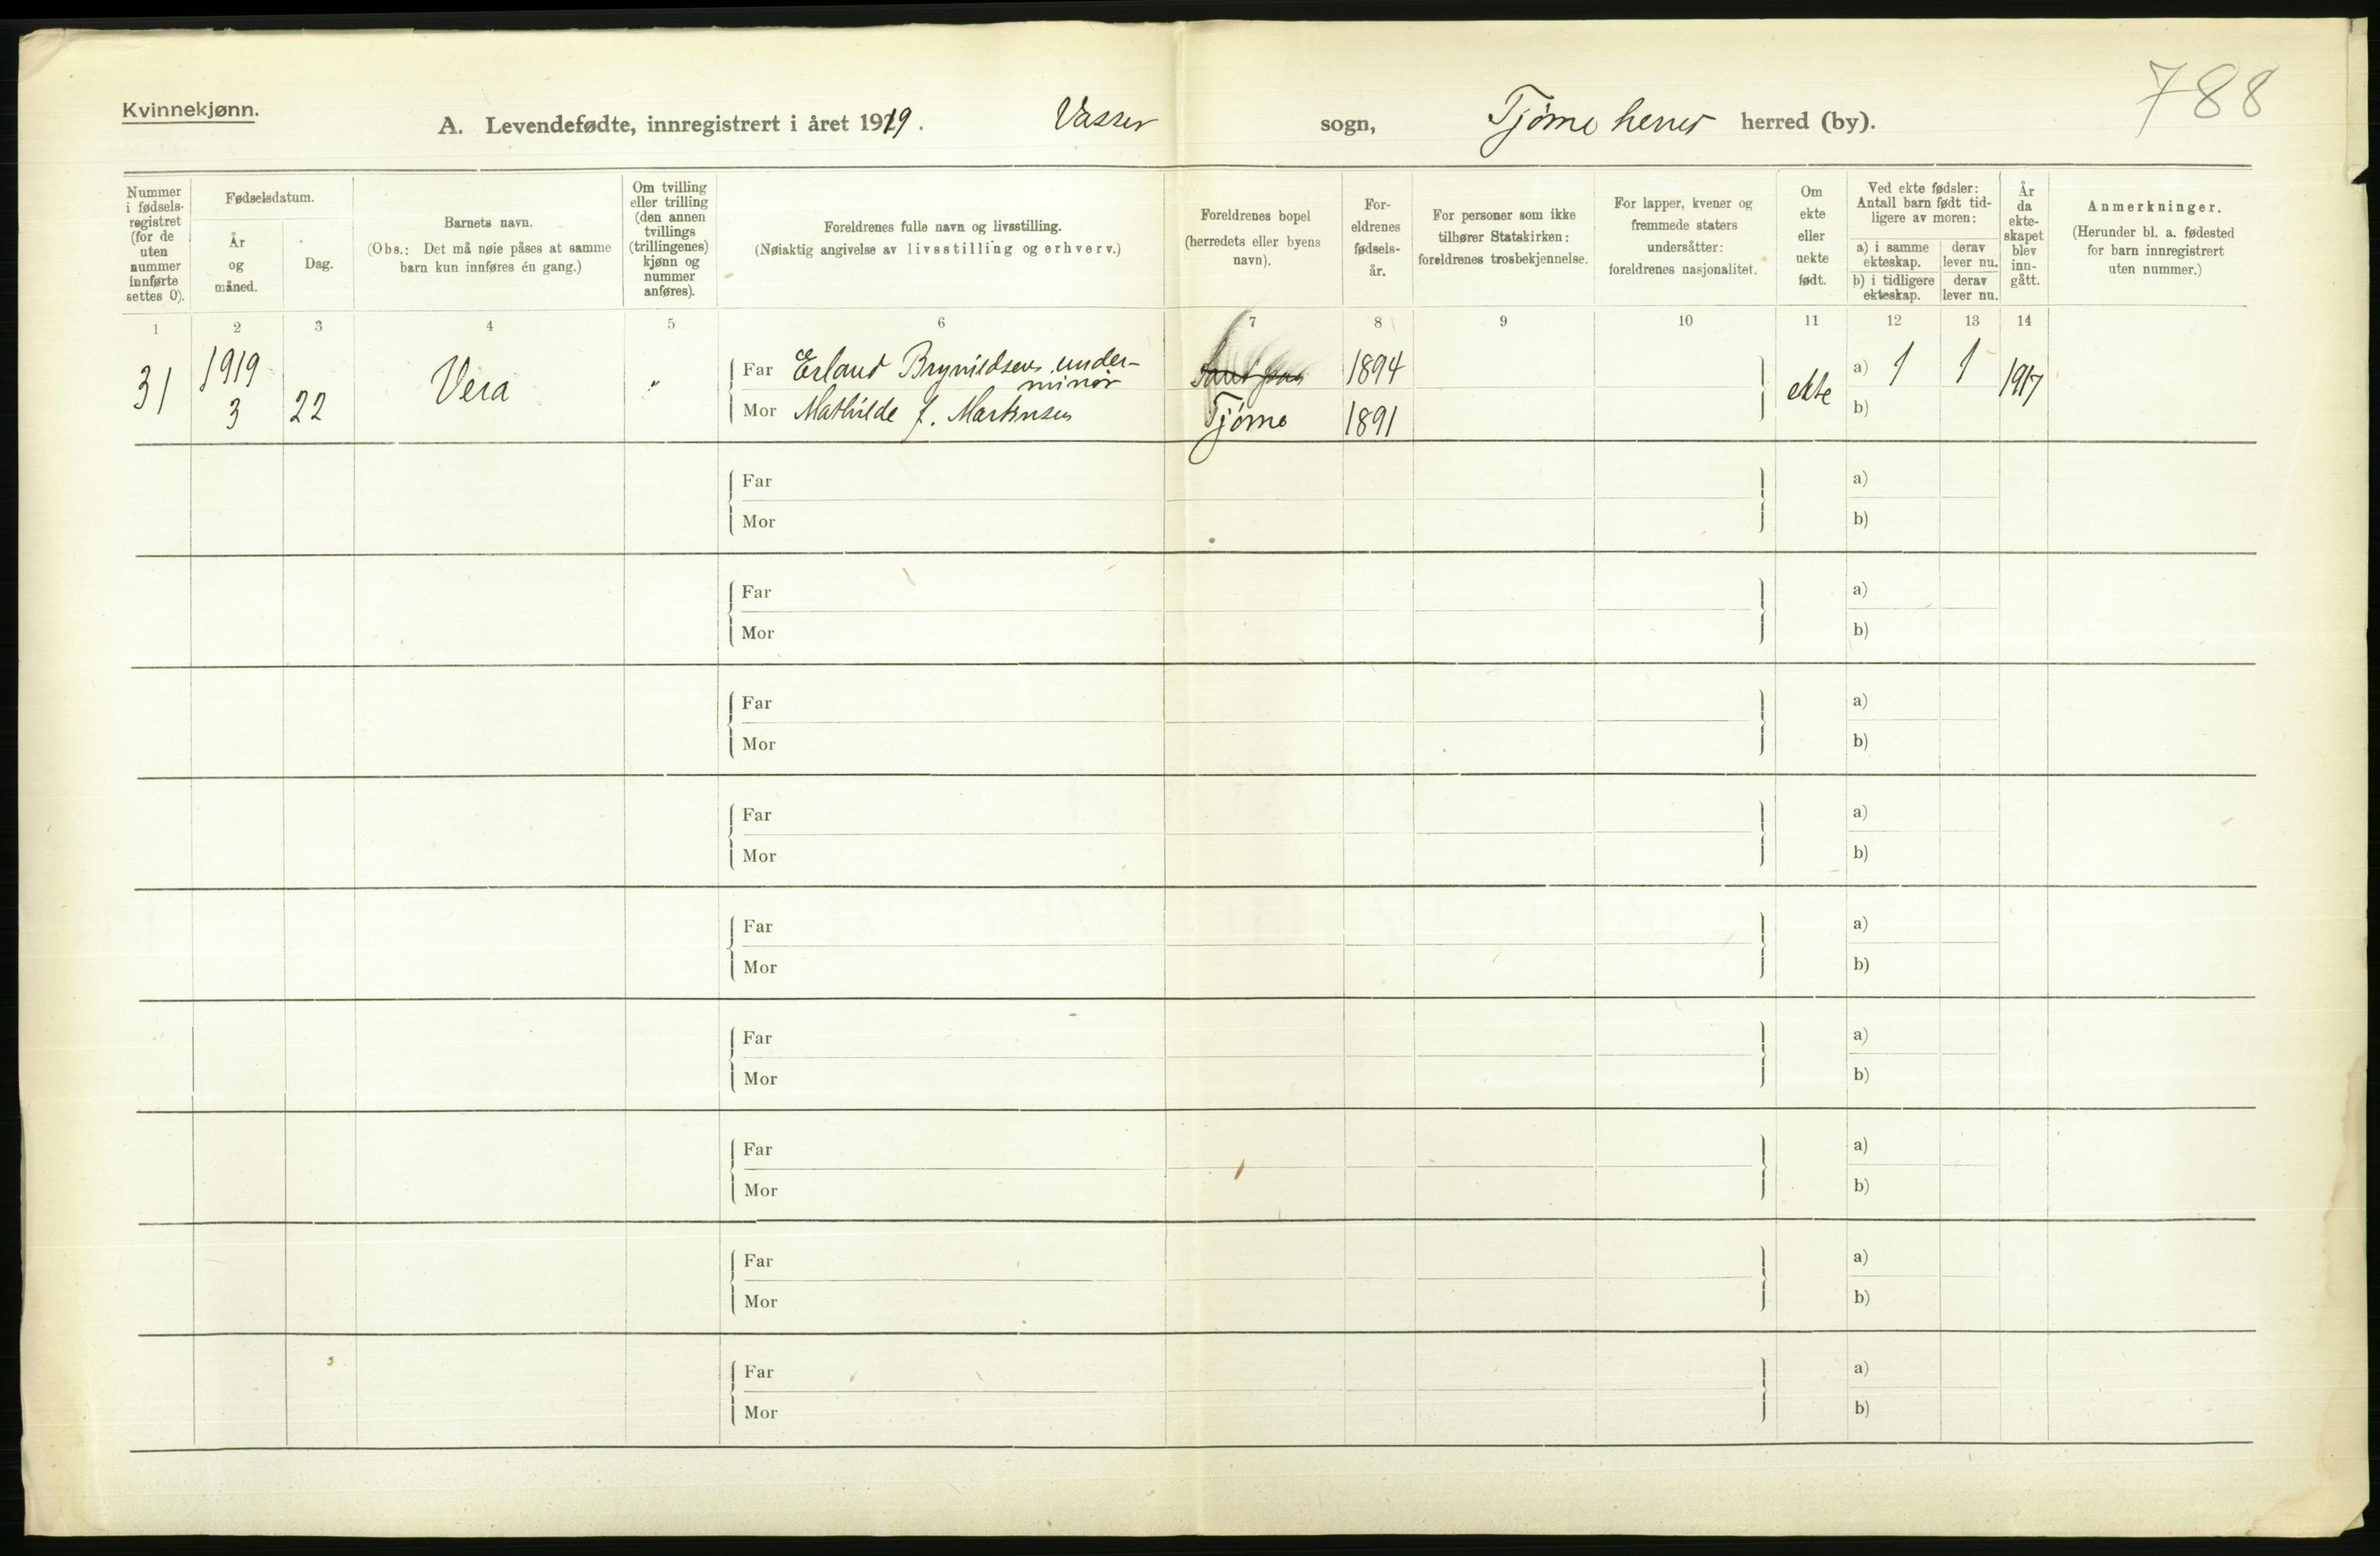 788
Kvinnekjønn.
A. Levendefødte, innregistrert i året 1919. Vasser sogn, Tjøme herred herred (by).
Nummer i fødselsregistret (for de uten nummer innførte settes 0).
Fødselsdatum.
År og måned.
Dag.
Barnets navn.
(Obs.: Det må nøie påses at samme barn kun innføres én gang.)
Om tvilling eller trilling (den annen tvillings (trillingenes) kjønn og nummer anføres).
Foreldrenes fulle navn og livsstilling.
(Nøiaktig angivelse av livsstilling og erhverv.)
Foreldrenes bopel (herredets eller byens navn).
Foreldrenes fødselsår.
For personer som ikke tilhører Statskirken: foreldrenes trosbekjennelse.
For lapper, kvener og fremmede staters undersåtter: foreldrenes nasjonalitet.
Om ekte eller uekte født.
Ved ekte fødsler: Antall barn født tidligere av moren:
a) i samme ekteskap.
derav lever nu.
b) i tidligere ekteskap.
derav lever nu.
År da ekteskapet blev inngått.
Anmerkninger.
(Herunder bl. a. fødested for barn innregistrert uten nummer.)
1 2 3 4 5 6 7 8 9 10 11 12 13 14
31 1919 3 22 Vera "
Far Erland Brynildsen under-
minør
1894 ekte a) 1 1 1917
Mor Mathilde f. Martinsen Tjøme 1891 b)
Far a)
Mor b)
Far a)
Mor b)
Far a)
Mor b)
Far a)
Mor b)
Far a)
Mor b)
Far a)
Mor b)
Far a)
Mor b)
Far a)
Mor b)
Far a)
Mor b)